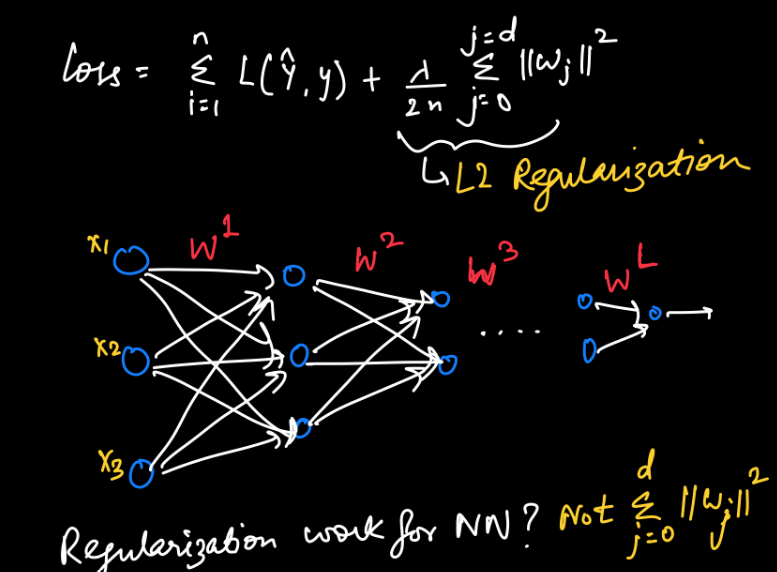 Loss = n Σ i=1 L(Ŷ, y) + λ/2n j=d Σ j=0 ||wj||²
↳ L2 Regularization
x1 W¹ W² W³ W^L
x2 ....
x3
Regularization work for NN? Not d Σ j=0 ||wj||²